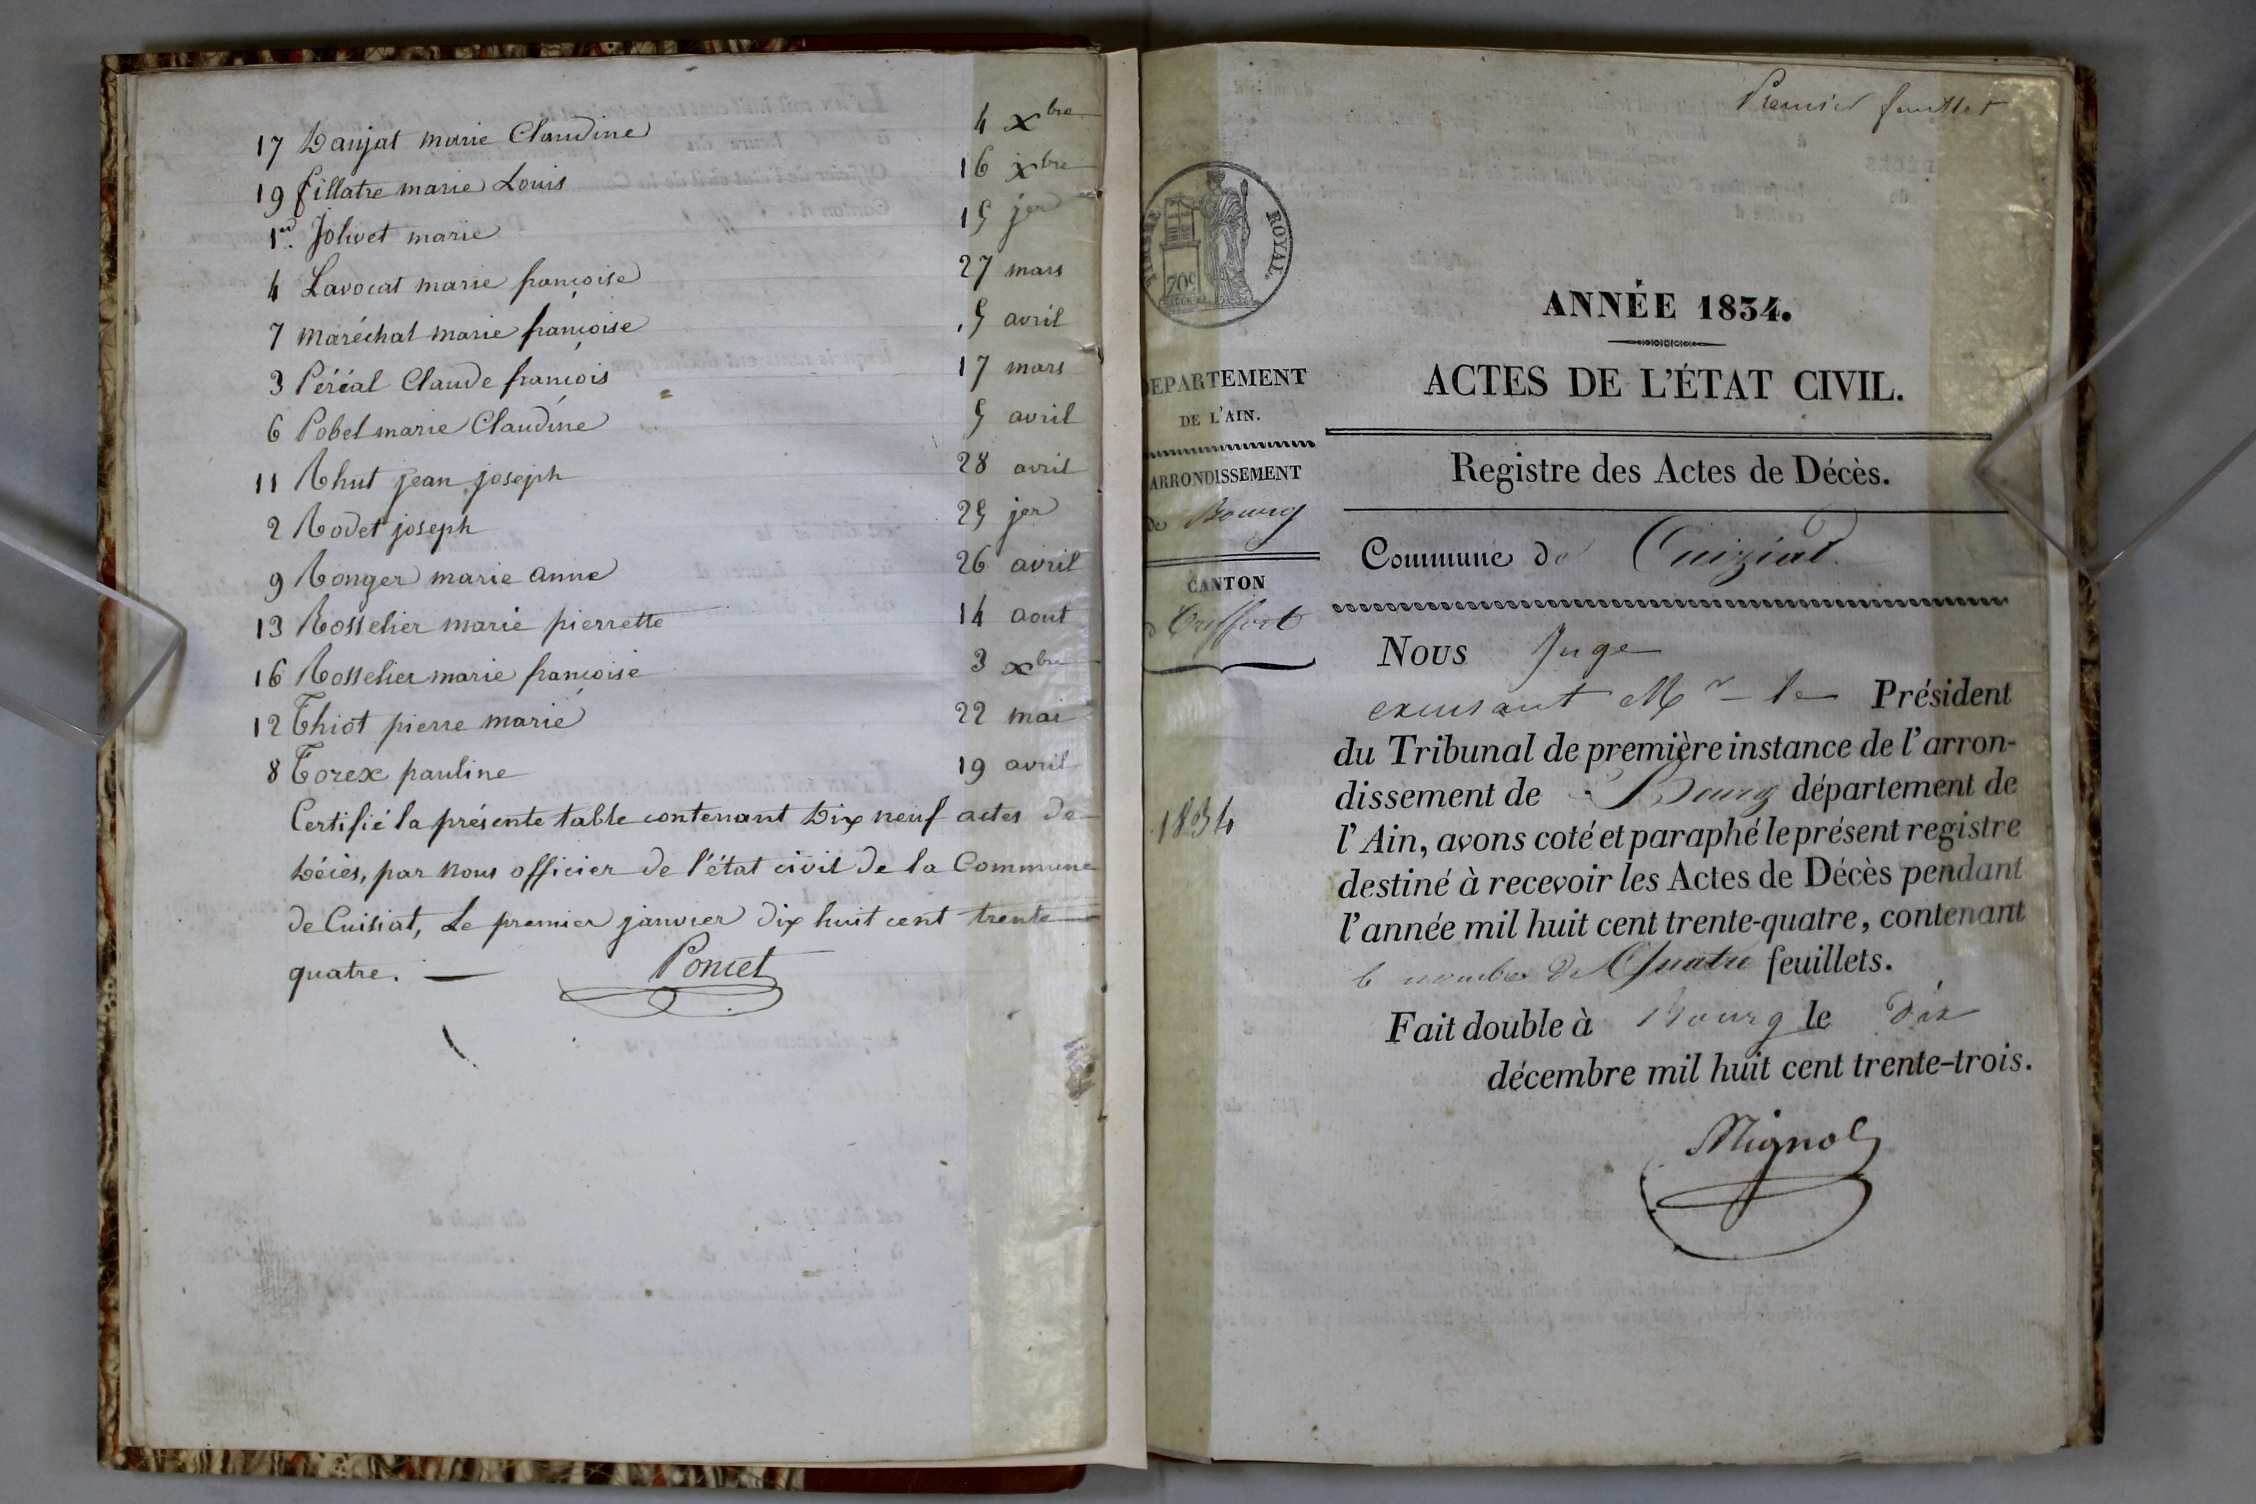 17 Daujat marie Claudine 4 Xbre
19 fillatre marie Louis 16 Xbre
1er. Jolivet marie 15 jer
4 Lavocat marie françoise 27 mars
7 maréchal marie françoise 5 avril
3 Péréal Claude françois 17 mars
6 Pobel marie Claudine 5 avril
11 Rhut jean joseph 28 avril
2 Rodet joseph 25 jer
9 Ronger marie anne 26 avril
13 Rosselier marie pierrette 14 aout
16 Rosselier marie françoise 3 Xbre
12 Thiot pierre marie 22 mai
8 Torex pauline 19 avril
Certifié la présente table contenant Dix neuf actes de
Décès, par nous officier de l'état civil de la Commune
de Cuisiat, Le premier janvier dix huit cent trente
quatre.
Poncet
Premier feuillet
ROYAL.
70c
ANNÉE 1834.
ACTES DE L'ÉTAT CIVIL.
Registre des Actes de Décès.
Commune de Cuiziat.
DEPARTEMENT
DE L'AIN.
ARRONDISSEMENT
de Bourg
CANTON
d Treffort
1834
Nous Juge
excusant Mr le Président
du Tribunal de première instance de l'arron-
dissement de Bourg département de
l'Ain, avons coté et paraphé le présent registre
destiné à recevoir les Actes de Décès pendant
l'année mil huit cent trente-quatre, contenant
le nombre de Quatre feuillets.
Fait double à Bourg le dix
décembre mil huit cent trente-trois.